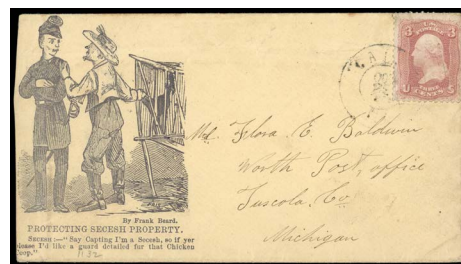 By Frank Beard.
PROTECTING SECESH PROPERTY.
SECESH:—"Say Capting I'm a Secesh, so if yer
please I'd like a guard detailed for that Chicken
Coop."
1132
Flora. E. Baldwin
Worth Post, office
Tuscola. Co
Michigan
3
3
U
S
CENTS